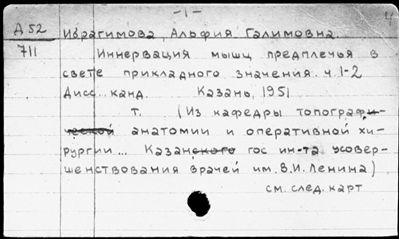 -1- 4
Д 52 Ибрагимова, Альфия Галимовна.
711 Иннервация мышц предплечья в
свете прикладного значения. ч. 1-2
Дисс. канд. Казань, 1951
т. (Из кафедры топографи-
ческой анатомии и оперативной хи-
рургии... Казанского гос ин-та усовер-
шенствования врачей им. В.И. Ленина)
см. след. карт